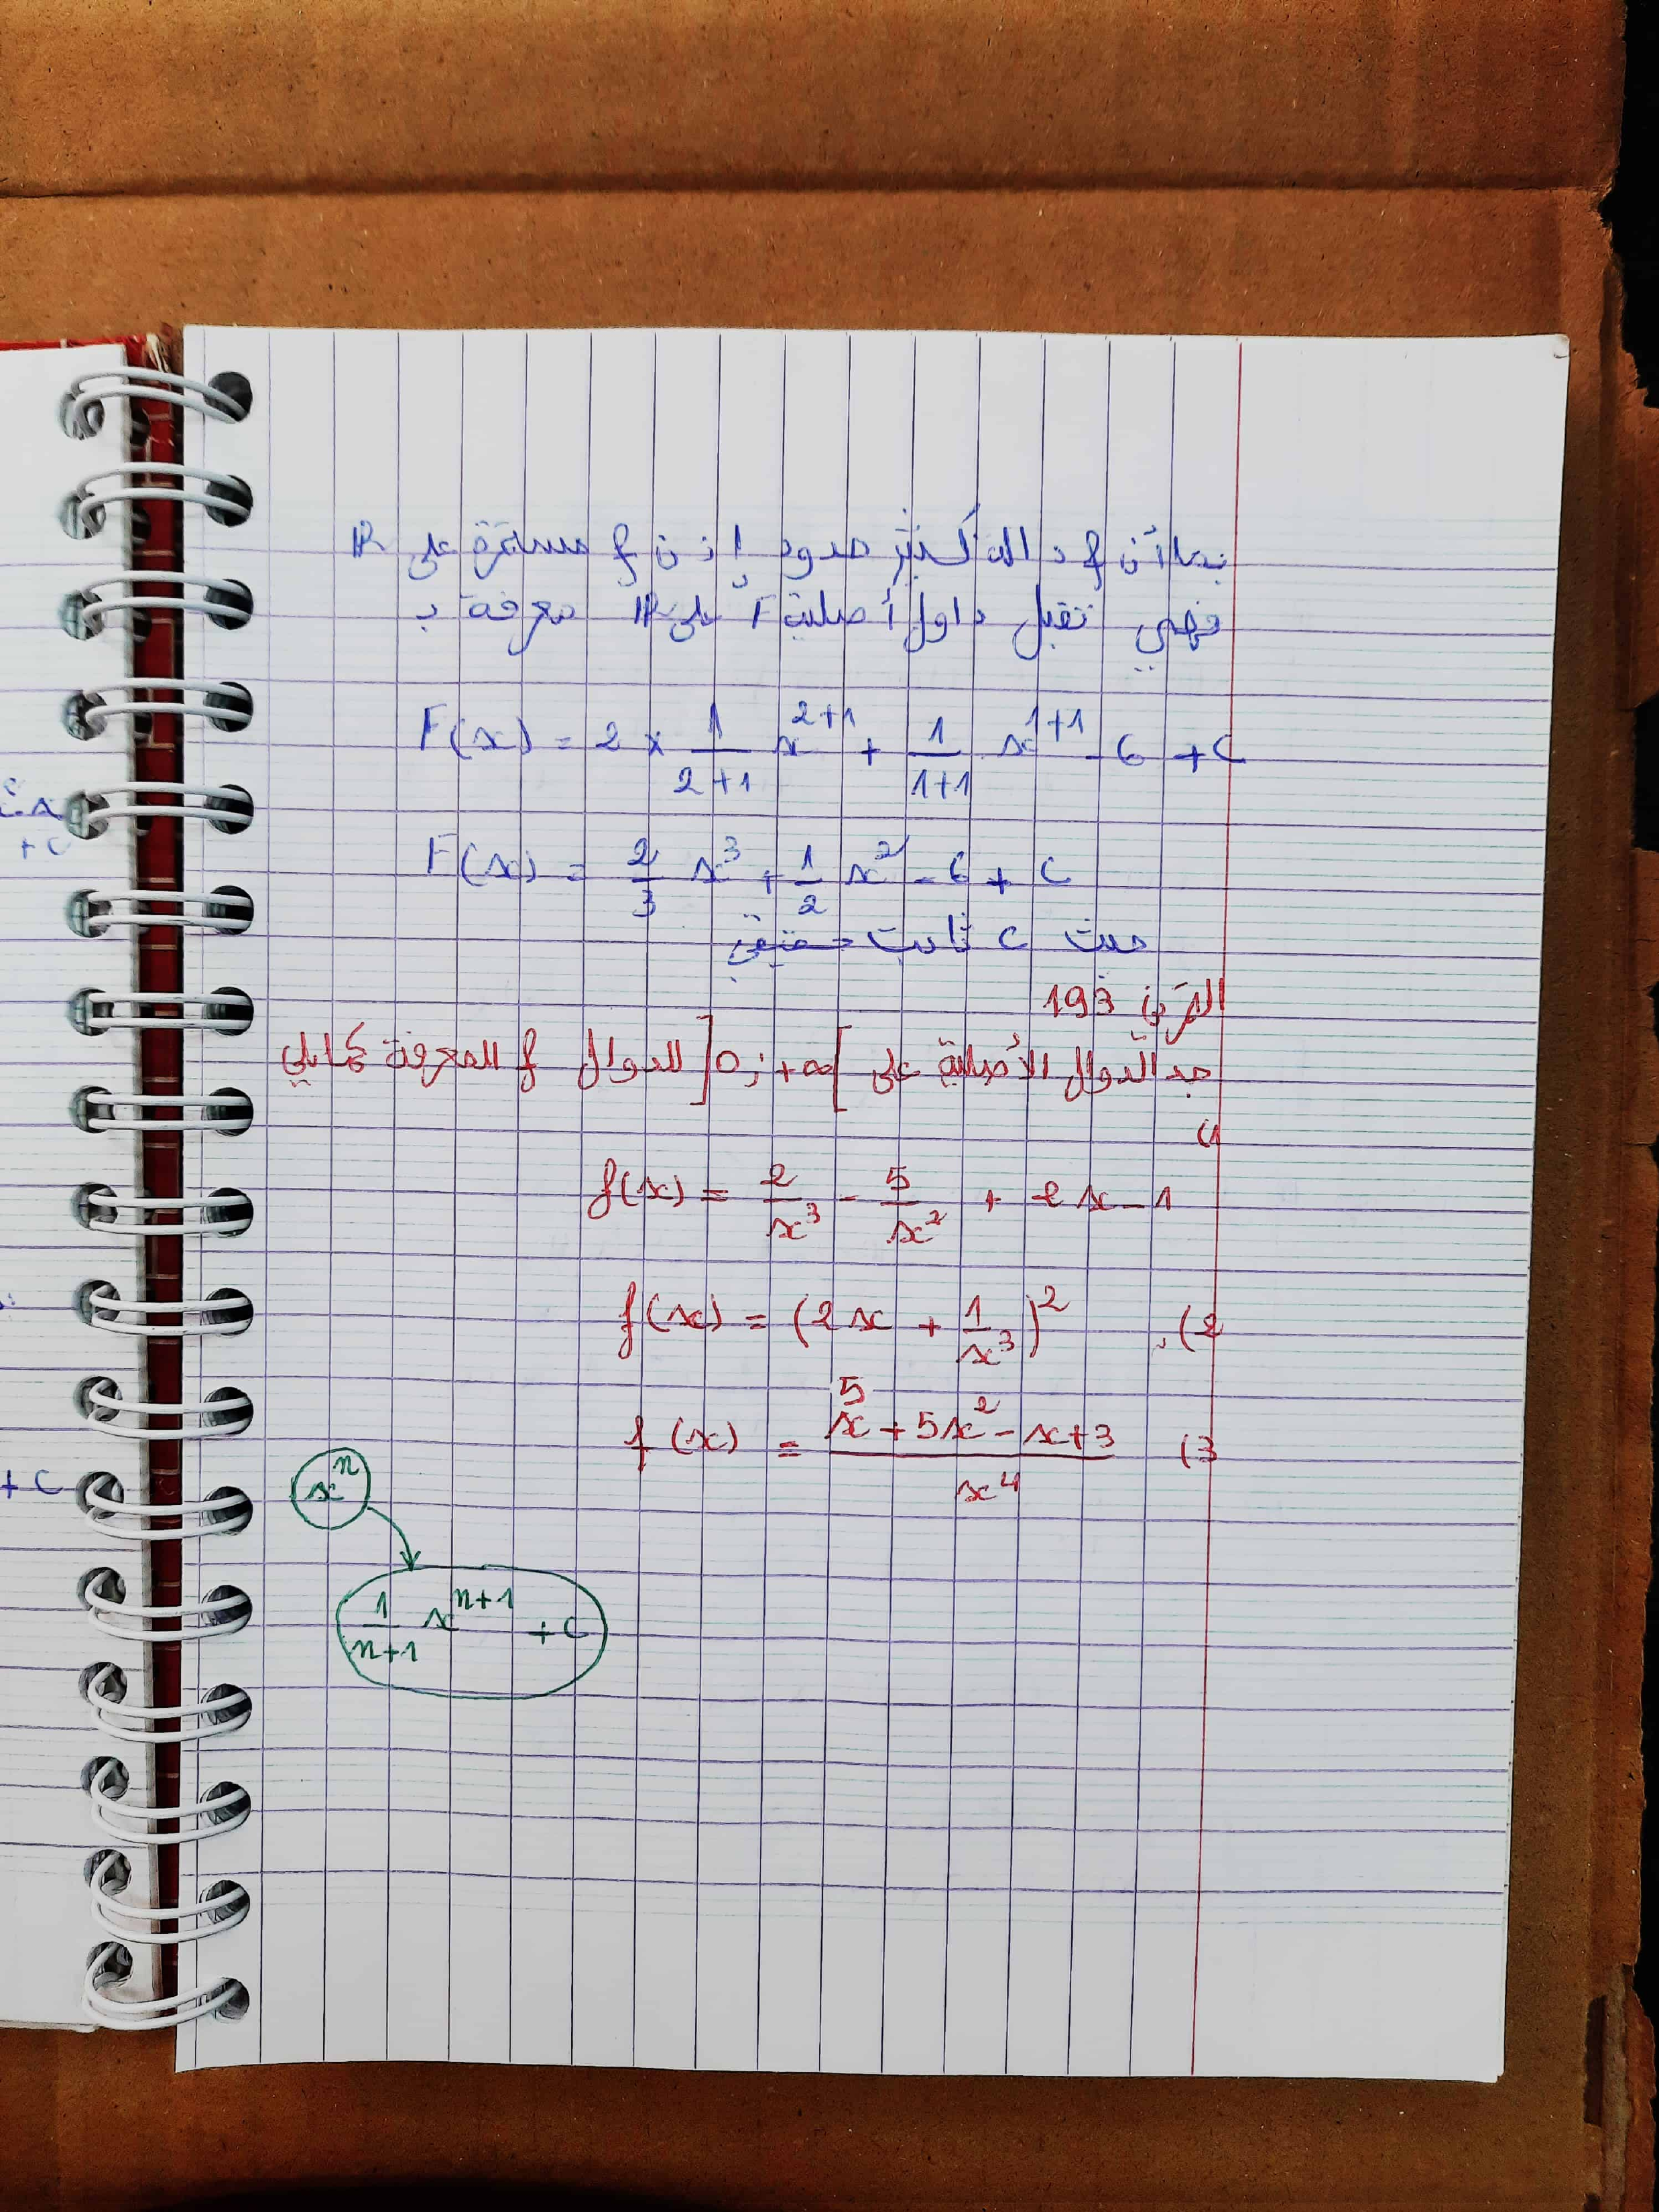 بما أن f دالة كثير حدود إذن f مستمرة على ℝ
فهي تقبل دوال أصلية F على ℝ معرفة بـ
F(x) = 2 × 1/(2+1) x^(2+1) + 1/(1+1) x^(1+1) - 6 + C
F(x) = 2/3 x^3 + 1/2 x^2 - 6 + C
حيث C ثابت حقيقي
التمرين 193
جد الدوال الأصلية على ]0 ; +∞[ للدوال f المعرفة كمايلي
(1
f(x) = 2/x^3 - 5/x^2 + 2x - 1
(2 f(x) = (2x + 1/x^3)^2
(3 f(x) = (x^5 + 5x^2 - x + 3)/x^4
x^n
1/(n+1) x^(n+1) + C
+ C
+ C